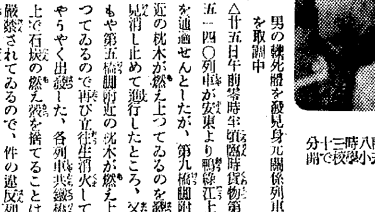 男の轢死體を發見身元關係列車
を取調中
△廿五日午前零時半頃臨時貨物第
五一四〇列車が安東より鴨綠江上
を通過せんとしたが、第九橋脚附
近の枕木が燃え上つてゐるのを發
見消し止めて進行したところ、又
もや第五橋脚附近の枕木が燃え上
つてゐるので再び立往生消火して
やうやく出發した、各列車共鐵橋
上で石炭の燃え殼を捨てることは
嚴禁されてゐるので、件の違反列
時三十分